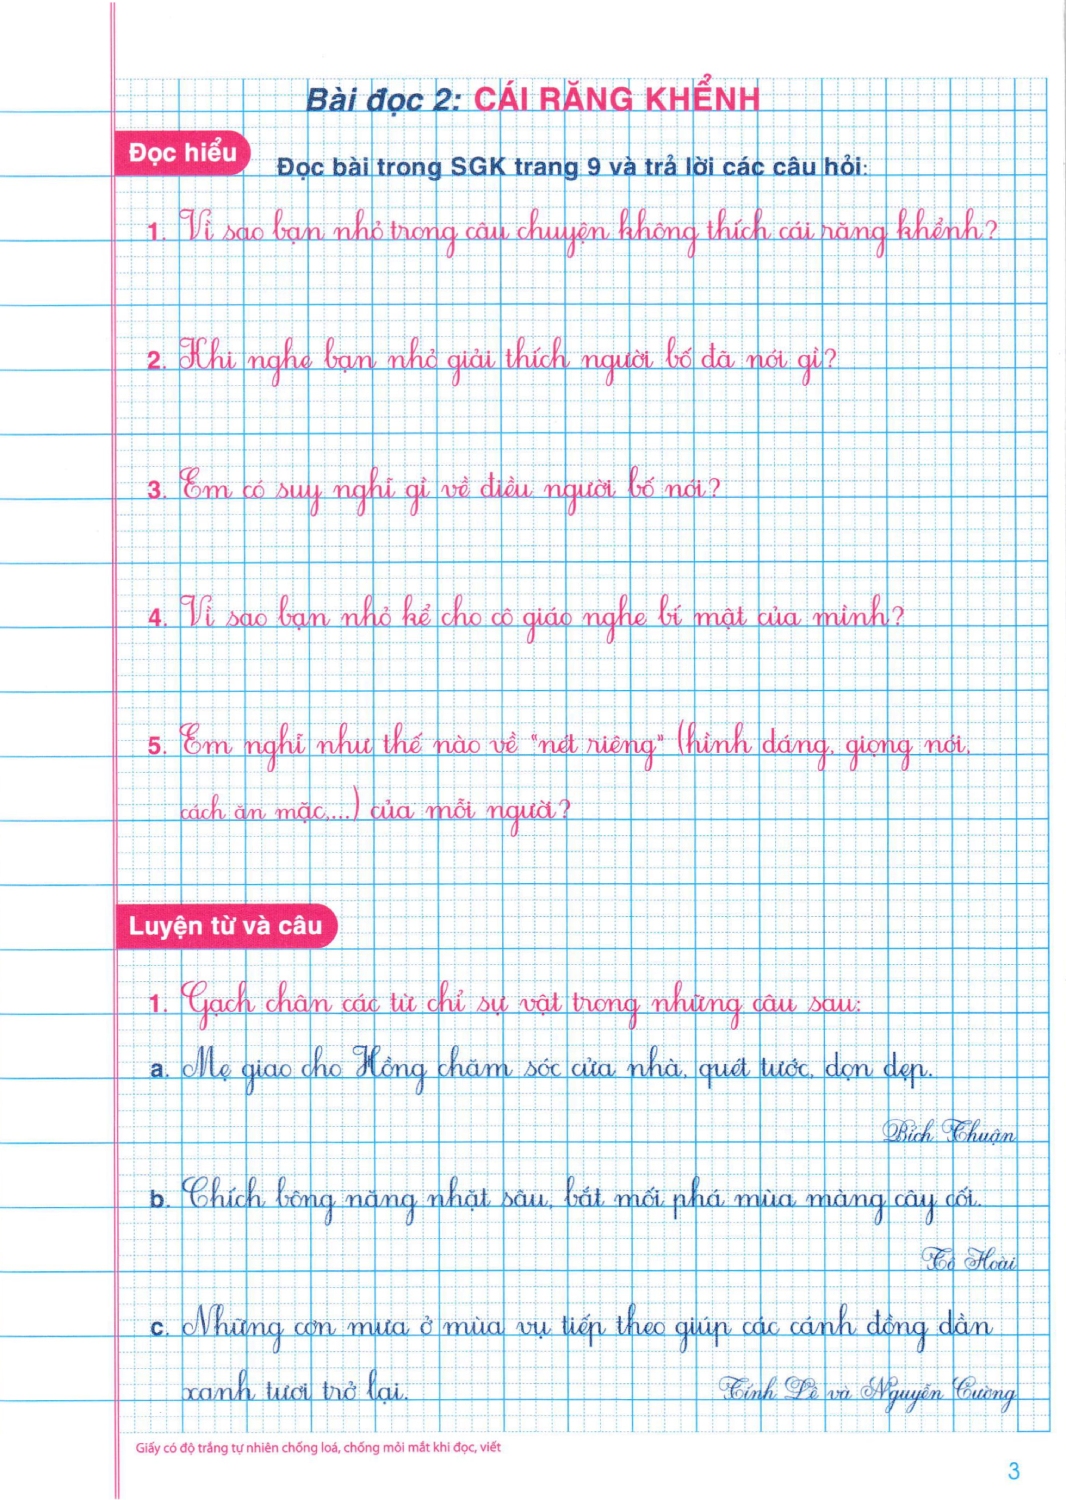 Bài đọc 2: CÁI RĂNG KHỂNH
Đọc hiểu
Đọc bài trong SGK trang 9 và trả lời các câu hỏi:
1. Vì sao bạn nhỏ trong câu chuyện không thích cái răng khểnh?
2. Khi nghe bạn nhỏ giải thích người bố đã nói gì?
3. Em có suy nghĩ gì về điều người bố nói?
4. Vì sao bạn nhỏ kể cho cô giáo nghe bí mật của mình?
5. Em nghĩ như thế nào về "nét riêng" (hình dáng, giọng nói,
cách ăn mặc,...) của mỗi người?
Luyện từ và câu
1. Gạch chân các từ chỉ sự vật trong những câu sau:
a. Mẹ giao cho Hồng chăm sóc cửa nhà, quét tước, dọn dẹp.
Bích Thuận
b. Chích bông năng nhặt sâu, bắt mối phá mùa màng cây cối.
Tô Hoài
c. Những cơn mưa ở mùa vụ tiếp theo giúp các cánh đồng dần
xanh tươi trở lại.
Tính Lê và Nguyễn Cường
Giấy có độ trắng tự nhiên chống loá, chống mỏi mắt khi đọc, viết
3